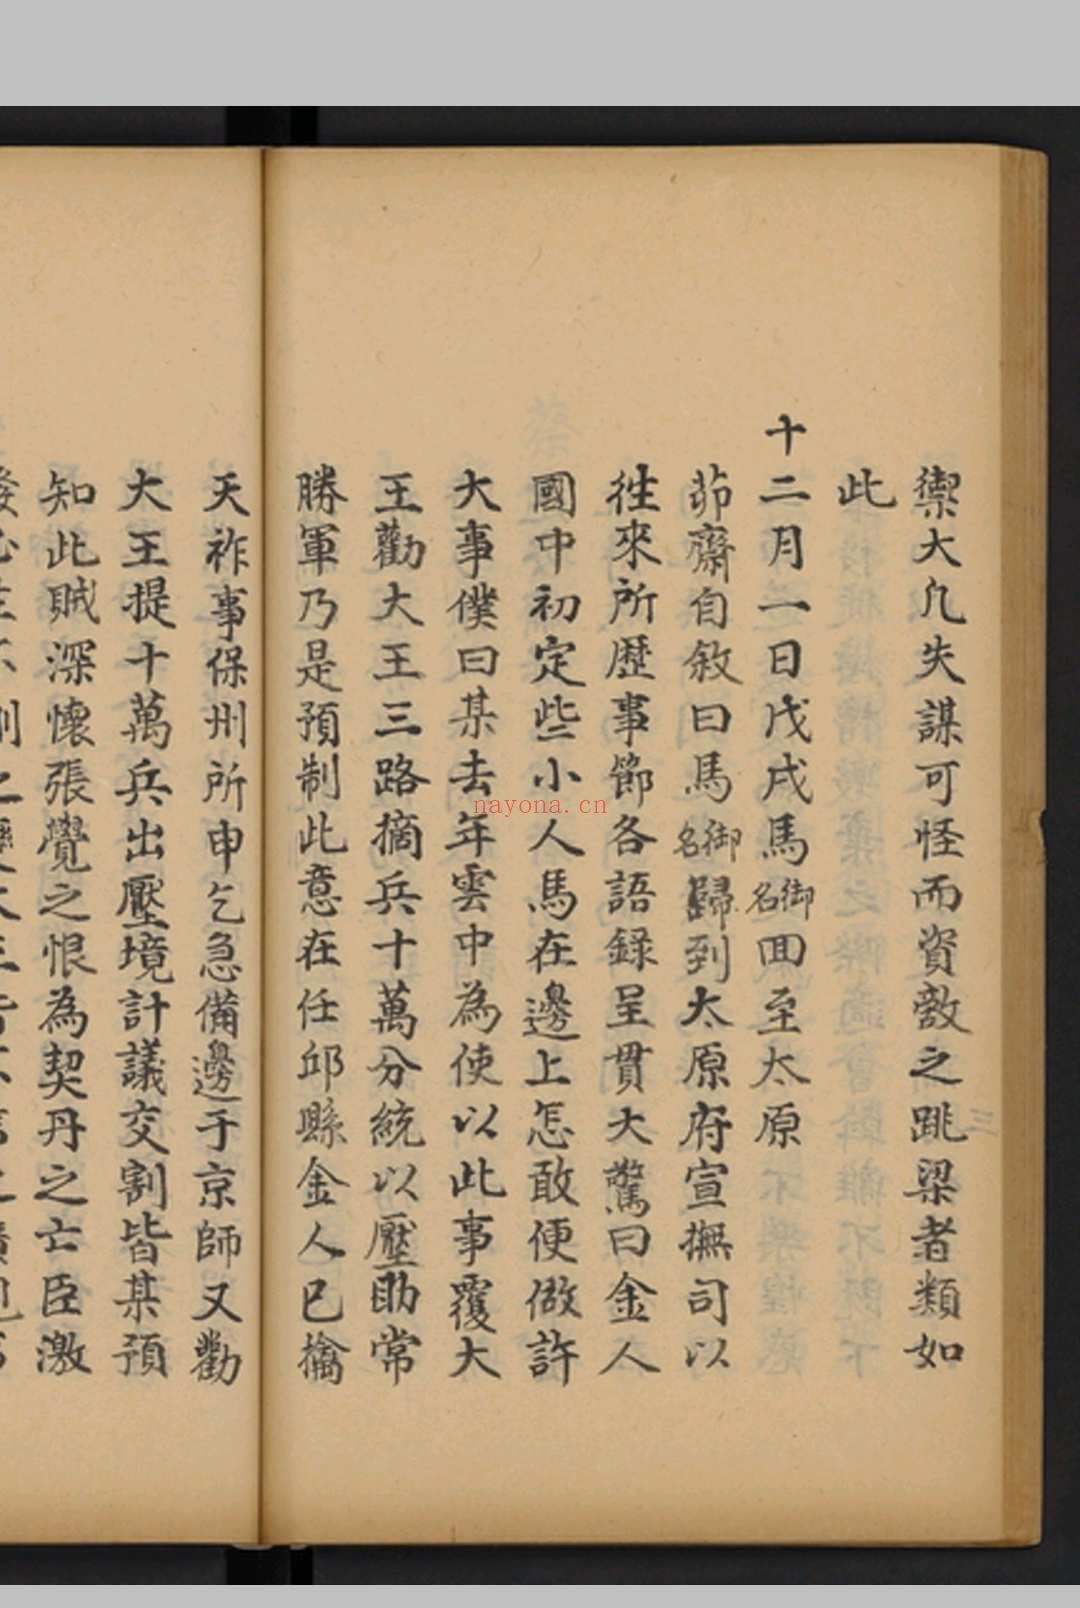 禦大凡失謀可怪而資敵之跳梁者類如
此
十二月一日戊戌馬御名囬至太原
茆齋自敘曰馬御名歸到太原府宣撫司以
徃來所歷事節各語録呈貫大驚曰金人
國中初定些小人馬在邊上怎敢便做許
大事僕曰某去年雲中為使以此事覆大
王勸大王三路摘兵十萬分統以壓助常
勝軍乃是預制此意在任邱縣金人已擒
天祚事保州所申乞急備邊于京師又勸
大王提十萬兵出壓境計議交割皆某預
知此賊深懷張覺之恨為契丹之亡臣激
nayona.cn